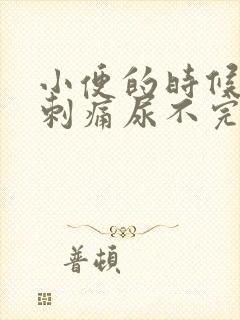 小便的時候
刺痛尿不完
普頓